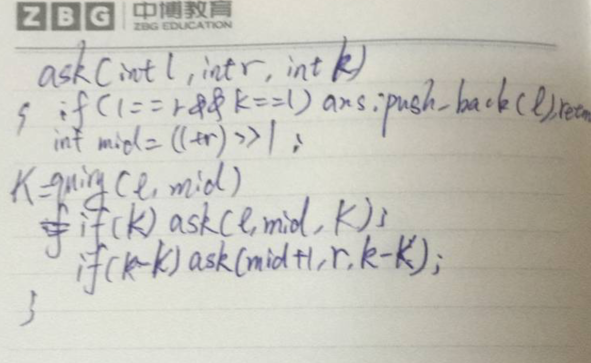 ZBG 中博教育
ZBG EDUCATION
ask(int l, int r, int k)
{ if(l==r && k==1) ans.push_back(l), retu
int mid=(l+r)>>1;
K=quiry(l, mid)
if(k) ask(l, mid, K);
if(k-K) ask(mid+1, r, k-K);
}